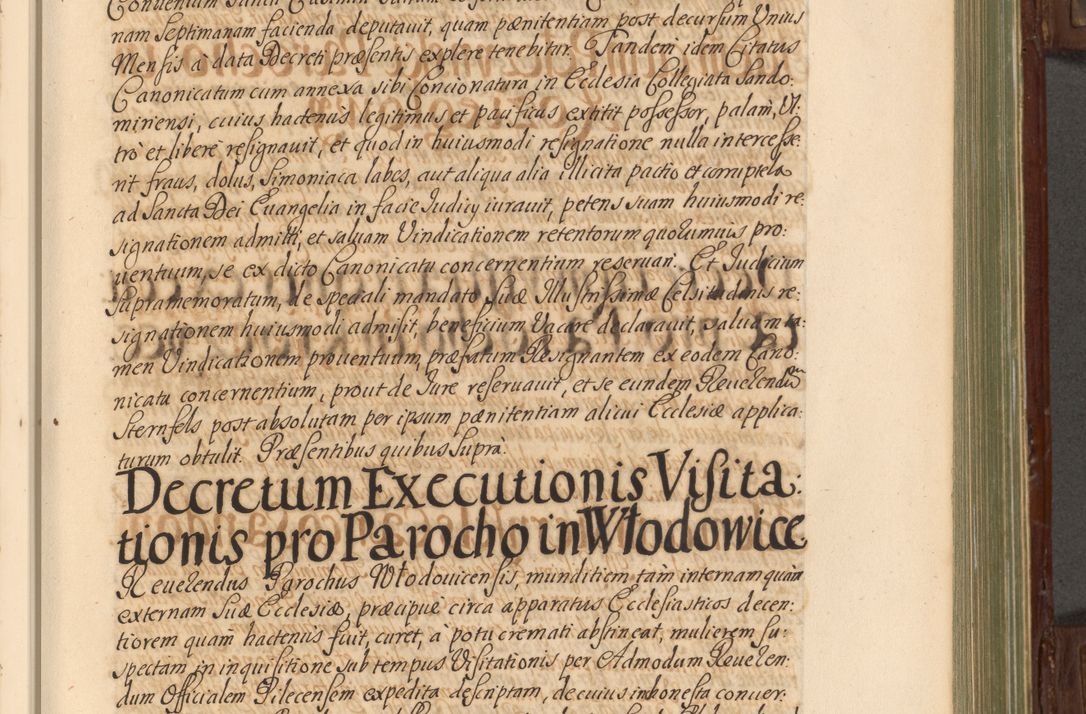 nam septimanam facienda deputavit, quam pænitentiam post decursum Unius
Mensis a data Decreti præsentis explere tenebitur. Tandem idem Citatus
Canonicatum cum annexa sibi Concionatura in Ecclesia Collegiata Sando:
miriensi, cuius hactenus legitimus et pacificus extitit possessor, palam, Ul:
tro et libere resignauit, et quod in huiusmodi resignatione nulla intercesse:
rit fraus, dolus, Simoniaca labes, aut aliqua alia illicita pactio et corruptela
ad Sancta Dei Euangelia in facie Iudicij iurauit, petens suam huiusmodi re:
signationem admitti, et saluam Vindicationem retentorum quorumuis pro:
uentuum, se ex dicto Canonicatu concernentium reseruari. Et Iudicium
supramemoratum, de speciali mandato Suæ Illustrissimæ Celsitudinis re:
signationem huiusmodi admisit, beneficium Vacare declarauit, saluam ta:
men Vindicationem prouentuum, præfatum Resignantem ex eodem Cano:
nicatu concernentium, prout de Iure reseruauit, et se eundem Reuerendum
Sternfels post absolutam per ipsum pænitentiam alicui Ecclesiæ applica:
turum obtulit. Præsentibus quibus supra.
Decretum Executionis Visita:
tionis pro Parocho in Włodowice
Reuerendus Parochus Włodouicensis, munditiem tam internam quam
externam Suæ Ecclesiæ, præcipue circa apparatus Ecclesiasticos decen:
tiorem quam hactenus fuit, curet, a potu cremati abstineat, mulierem su:
spectam in inquisitione sub tempus Visitationis per Admodum Reueren:
dum Officialem Pilecensem expedita descriptam, de cuius inhonesta conuer: